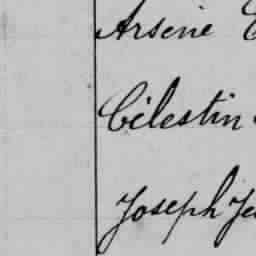 Arsène
Célestin
Joseph Je